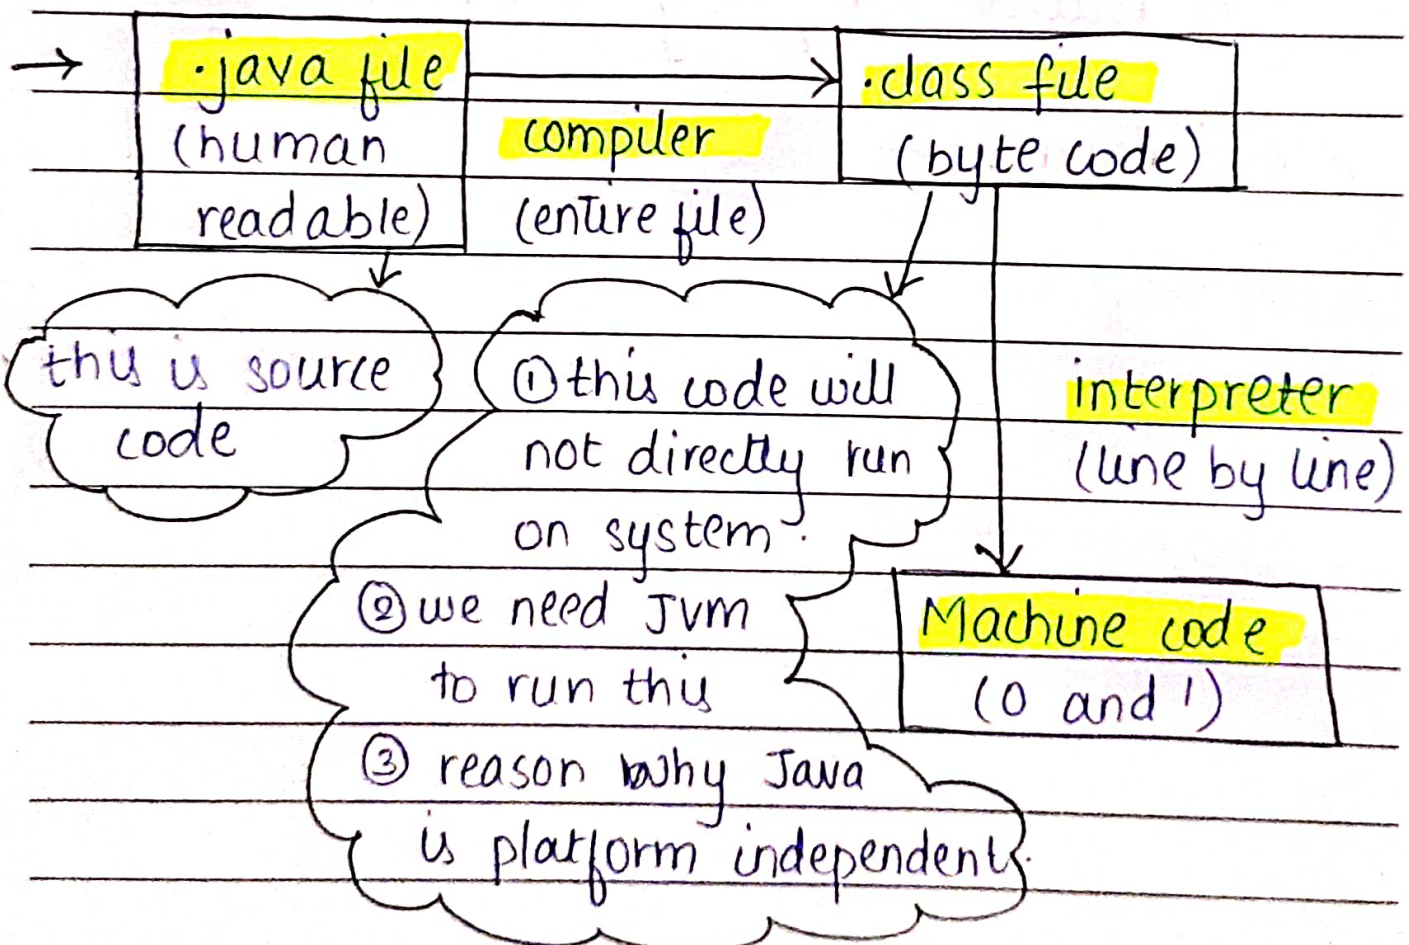 → .java file
(human
readable)
compiler
(entire file)
.class file
(byte code)
this is source
code
① this code will
not directly run
on system.
② we need JVM
to run this
③ reason why Java
is platform independent.
interpreter
(line by line)
Machine code
(0 and 1)